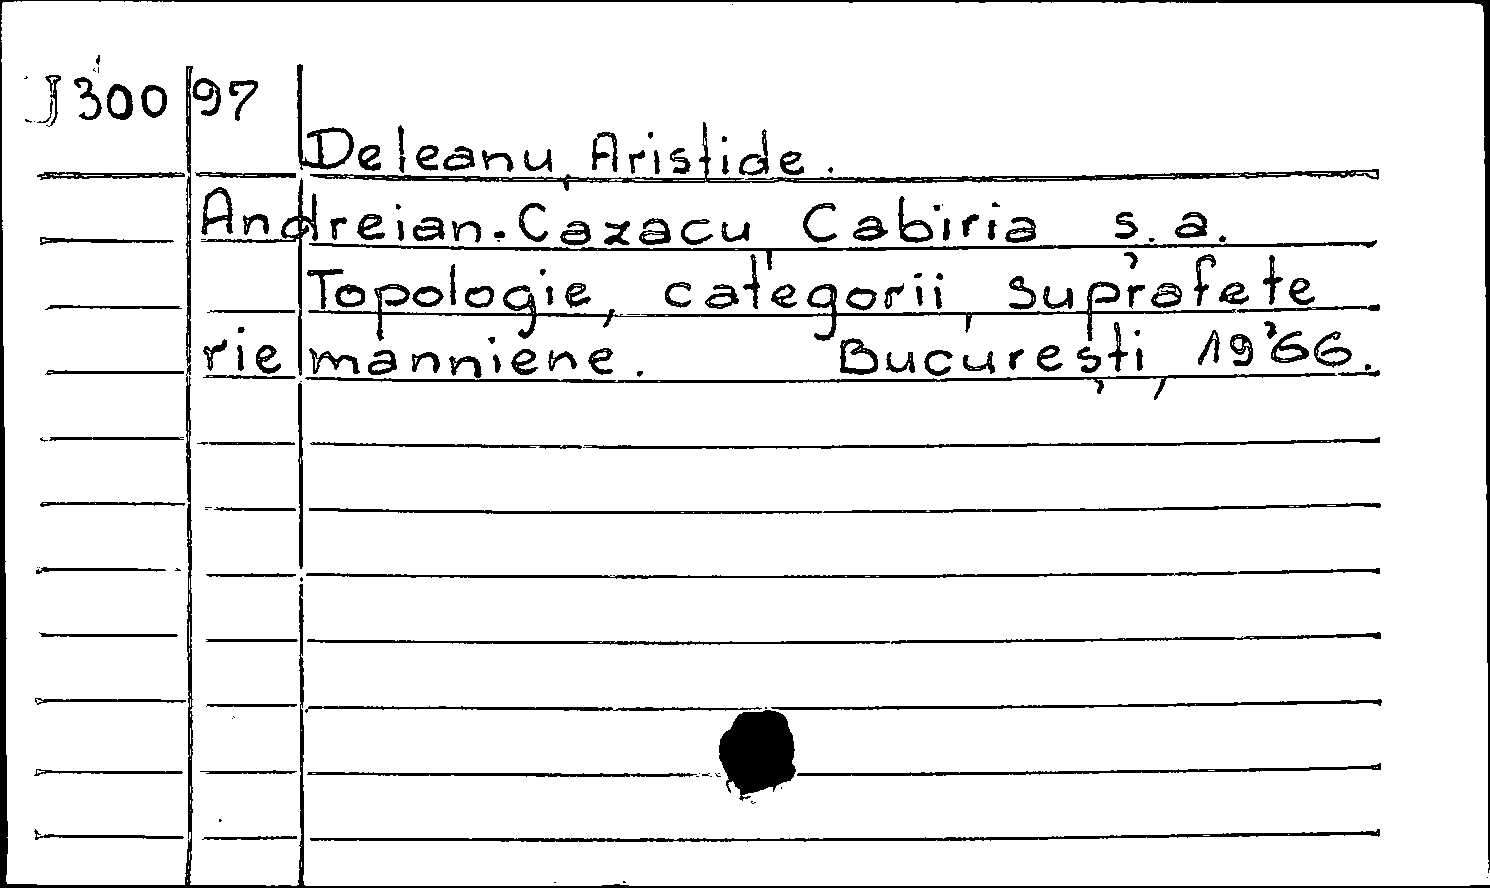 J300 97
Deleanu, Aristide.
Andreian-Cazacu Cabiria s.a.
Topologie, categorii, suprafețe
riemanniene. București, 1966.